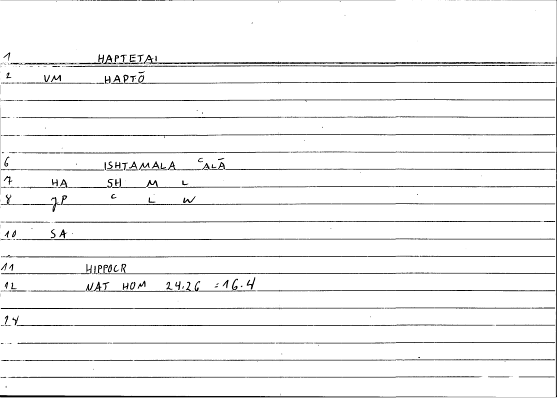 1 HAPTETAI
2 VM HAPTŌ
6 ISHTAMALA ᶜALĀ
7 HA SH M L
8 JP ᶜ L W
10 SA
11 HIPPOCR
12 NAT HOM 24.26 = 16.4
14